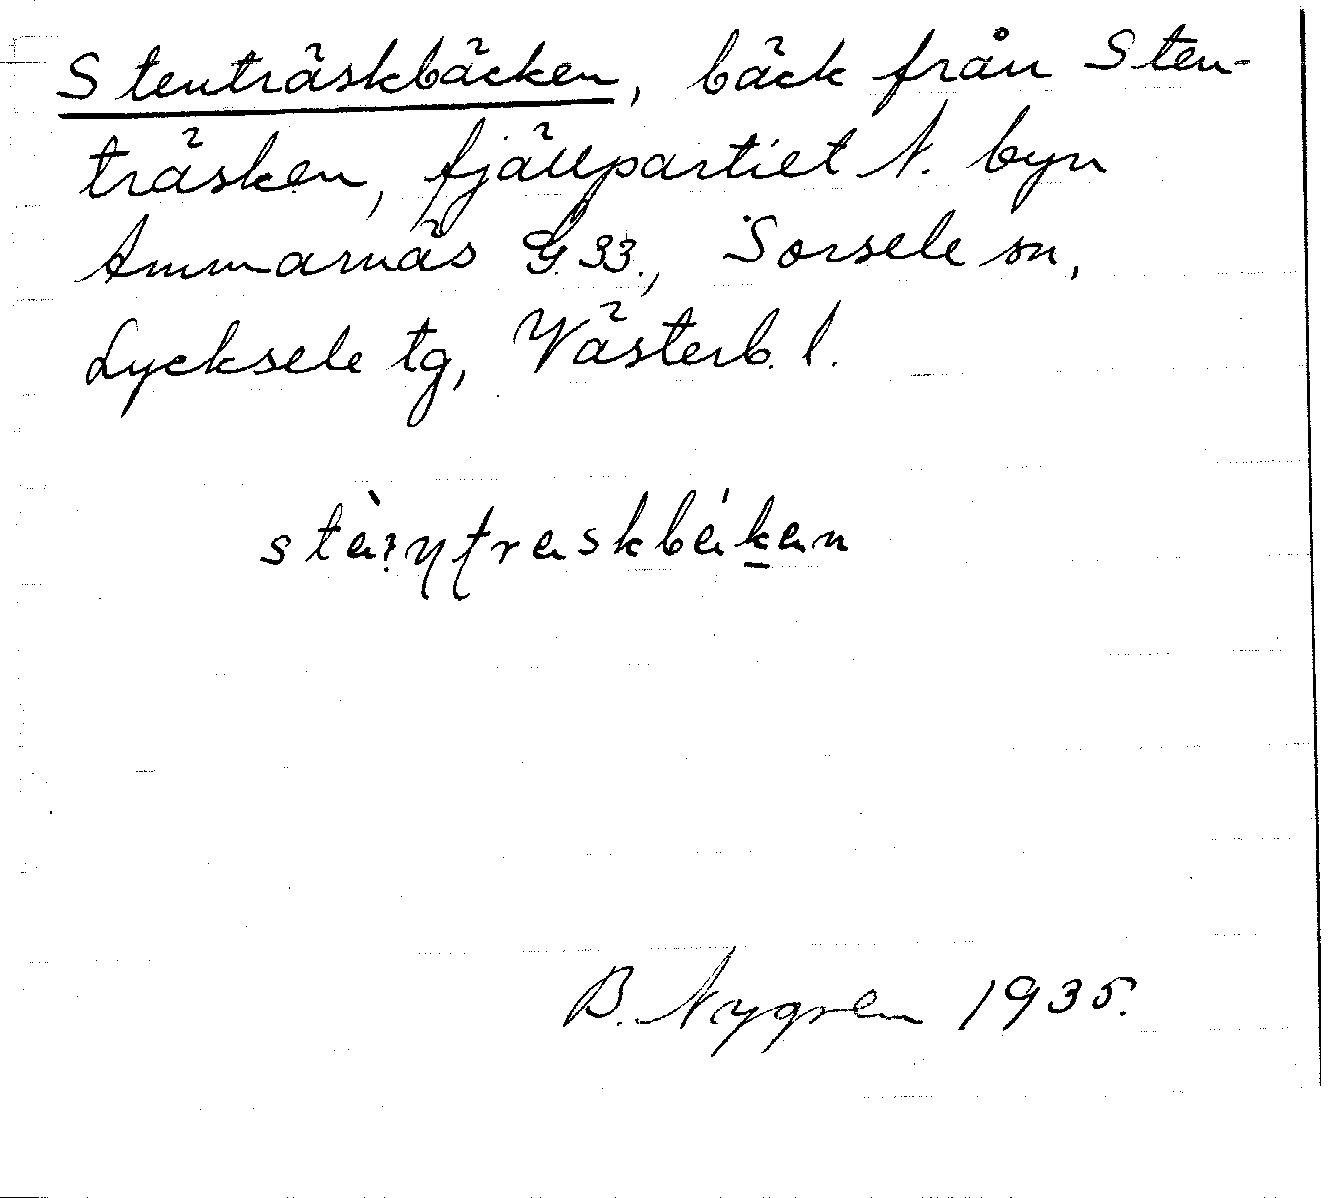 Stenträskbäcken, bäck från Sten-
träsken, fjällpartiet N. byn
Ammarnäs G.33., Sorsele sn,
Lycksele tg, Västerb. l.
B. Nygren 1935.